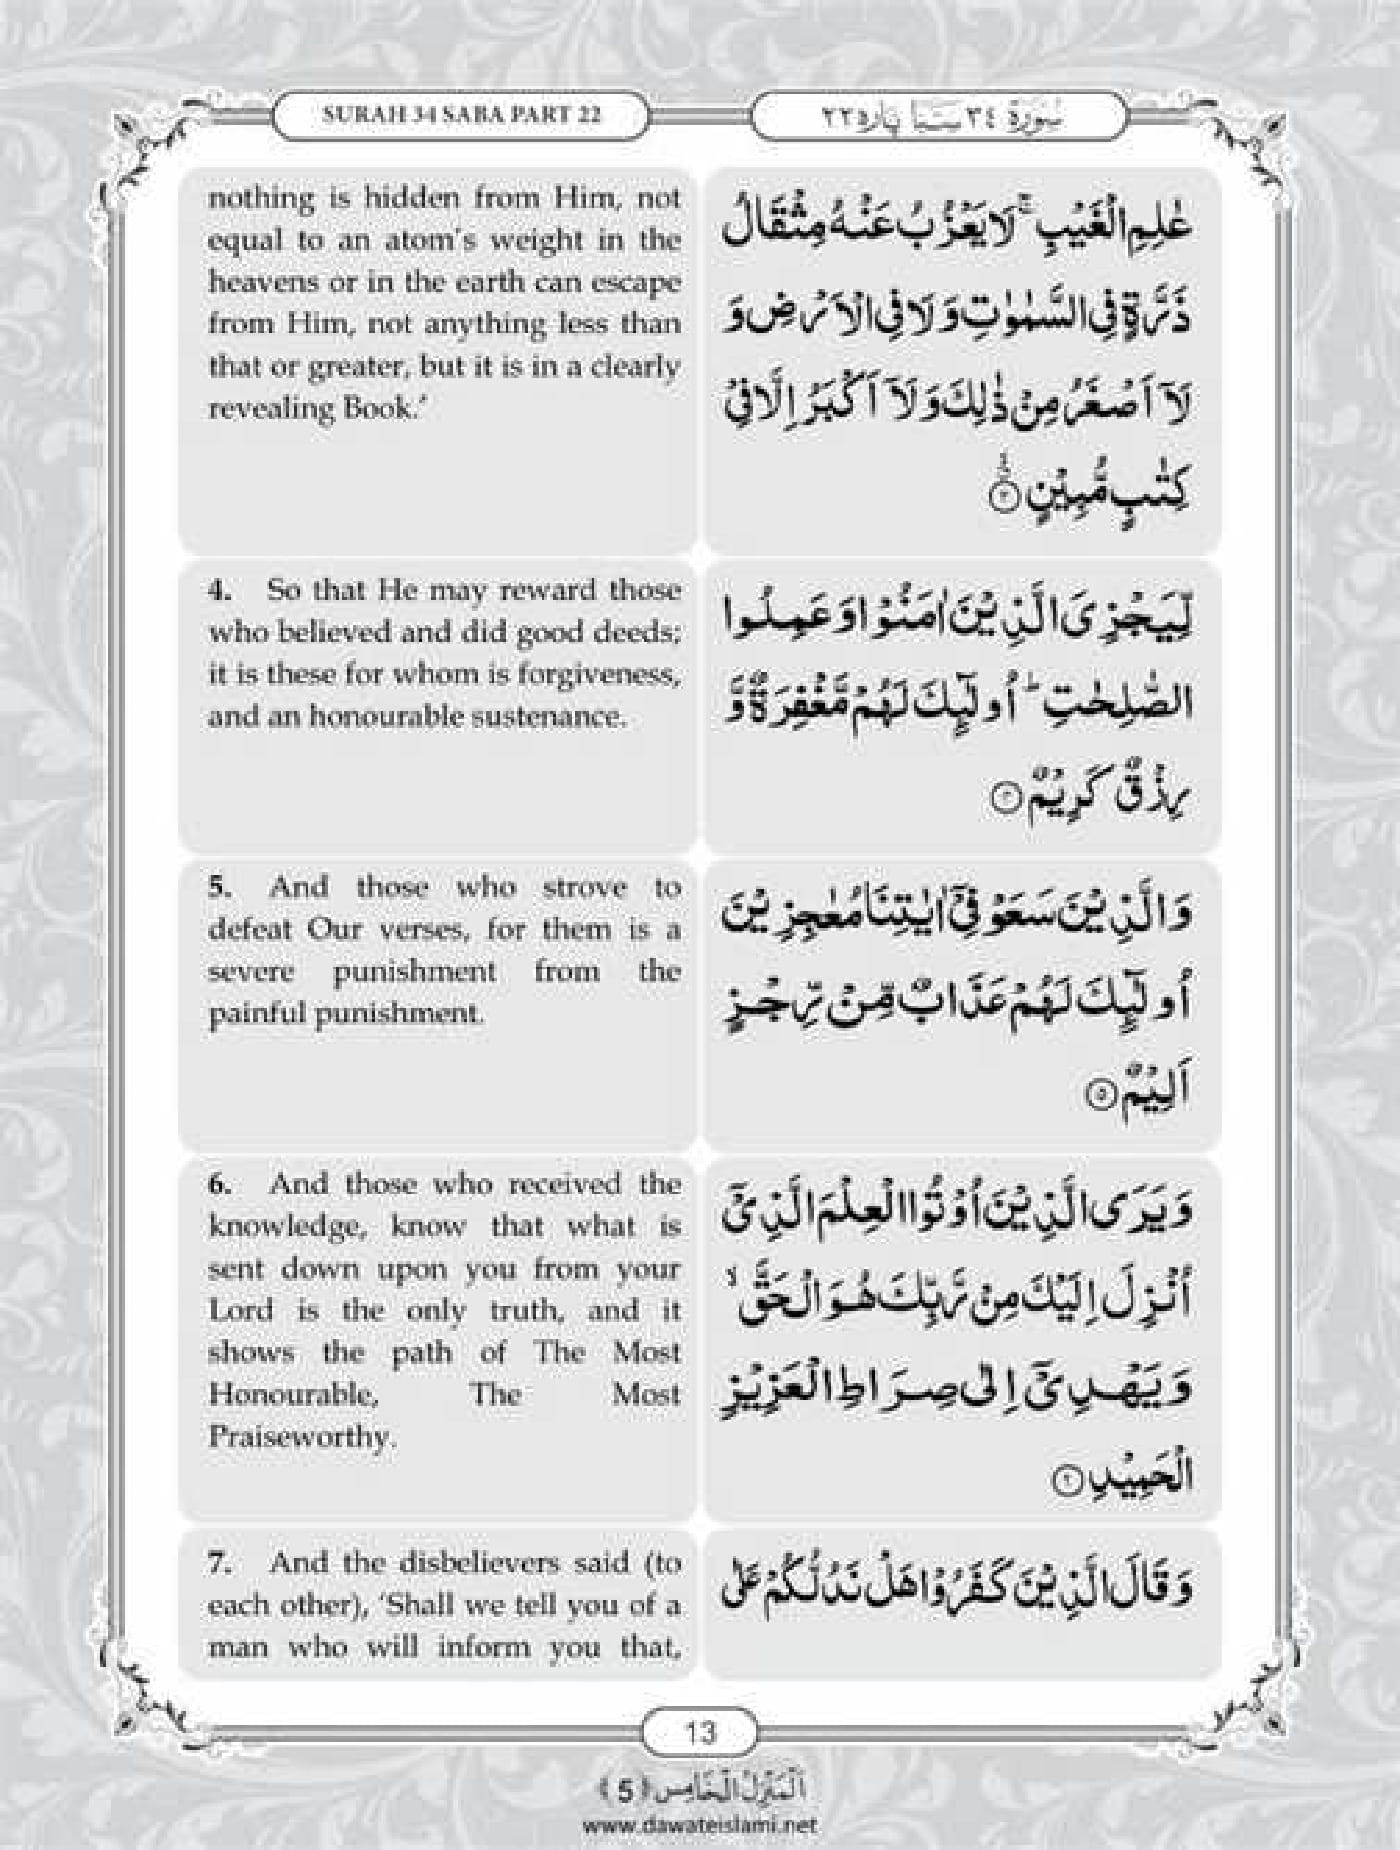 SURAH 34 SABA PART 22
سُوْرَةُ ٣٤ سَبَا پاره ٢٢
nothing is hidden from Him, not
equal to an atom's weight in the
heavens or in the earth can escape
from Him, not anything less than
that or greater, but it is in a clearly
revealing Book.'
عٰلِمِ الْغَيْبِ ۚ لَا يَعْزُبُ عَنْهُ مِثْقَالُ
ذَرَّةٍ فِي السَّمٰوٰتِ وَ لَا فِي الْاَرْضِ وَ
لَاۤ اَصْغَرُ مِنْ ذٰلِكَ وَ لَاۤ اَكْبَرُ اِلَّا فِيْ
كِتٰبٍ مُّبِيْنٍ
4. So that He may reward those
who believed and did good deeds;
it is these for whom is forgiveness,
and an honourable sustenance.
لِّيَجْزِيَ الَّذِيْنَ اٰمَنُوْا وَ عَمِلُوا
الصّٰلِحٰتِ ؕ اُولٰٓىِٕكَ لَهُمْ مَّغْفِرَةٌ وَّ
رِزْقٌ كَرِيْمٌ
5. And those who strove to
defeat Our verses, for them is a
severe punishment from the
painful punishment.
وَ الَّذِيْنَ سَعَوْ فِيْۤ اٰيٰتِنَا مُعٰجِزِيْنَ
اُولٰٓىِٕكَ لَهُمْ عَذَابٌ مِّنْ رِّجْزٍ
اَلِيْمٌ ۝٥
6. And those who received the
knowledge, know that what is
sent down upon you from your
Lord is the only truth, and it
shows the path of The Most
Honourable, The Most
Praiseworthy.
وَ يَرَى الَّذِيْنَ اُوْتُوا الْعِلْمَ الَّذِيْۤ
اُنْزِلَ اِلَيْكَ مِنْ رَّبِّكَ هُوَ الْحَقَّ ۙ
وَ يَهْدِيْۤ اِلٰى صِرَاطِ الْعَزِيْزِ
الْحَمِيْدِ ۝٦
7. And the disbelievers said (to
each other), 'Shall we tell you of a
man who will inform you that,
وَ قَالَ الَّذِيْنَ كَفَرُوْا هَلْ نَدُلُّكُمْ عَلٰى
13
اَلْمَنْزِلُ الْخَامِس ﴿5﴾
www.dawateislami.net